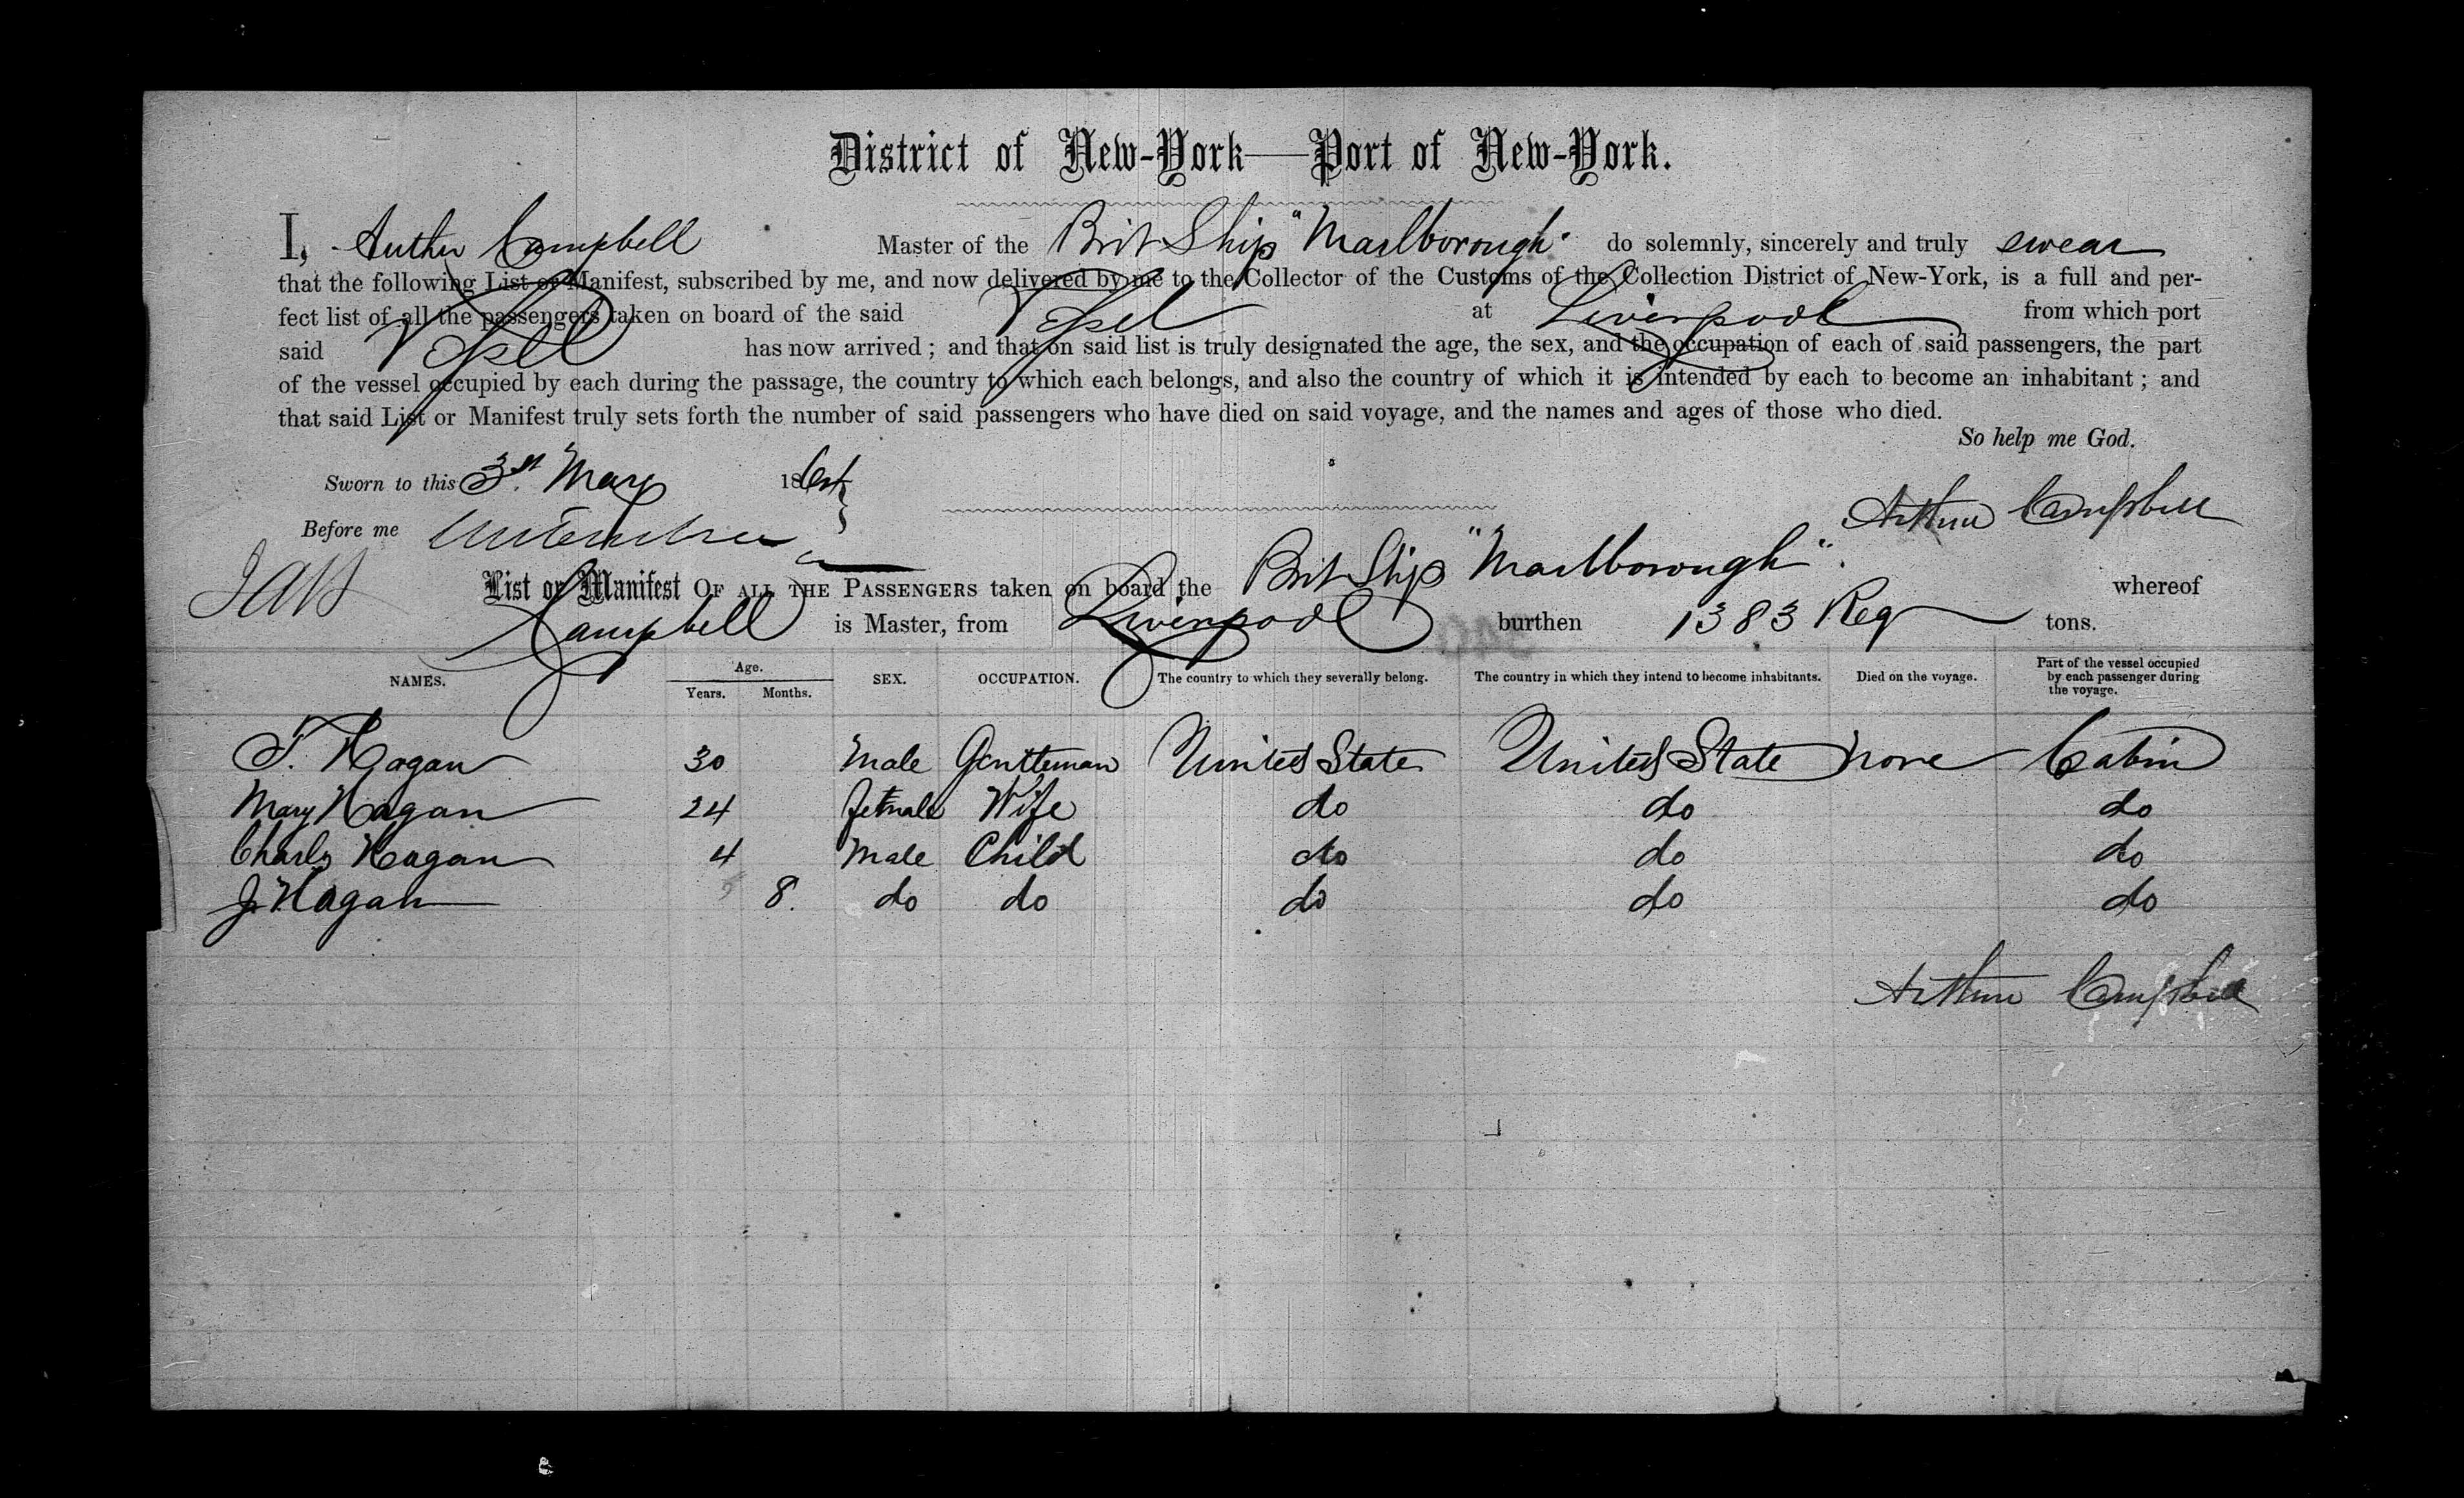 District of New-York—Port of New-York.
I, Auther Campbell Master of the Brit Ship "Marlborough" do solemnly, sincerely and truly swear
that the following List or Manifest, subscribed by me, and now delivered by me to the Collector of the Customs of the Collection District of New-York, is a full and per-
fect list of all the passengers taken on board of the said Vessel at Liverpool from which port
said Vessel has now arrived; and that on said list is truly designated the age, the sex, and the occupation of each of said passengers, the part
of the vessel occupied by each during the passage, the country to which each belongs, and also the country of which it is intended by each to become an inhabitant; and
that said List or Manifest truly sets forth the number of said passengers who have died on said voyage, and the names and ages of those who died.
So help me God.
Sworn to this 3 May 18
Before me
Arthur Campbell
List or Manifest OF ALL THE PASSENGERS taken on board the Brit Ship "Marlborough" whereof
Campbell is Master, from Liverpool burthen 1383 Reg tons.
NAMES. Age. Years. Months. SEX. OCCUPATION. The country to which they severally belong. The country in which they intend to become inhabitants. Died on the voyage. Part of the vessel occupied by each passenger during the voyage.
T. Hogan 30 Male Gentleman United States United State None Cabin
Mary Hagan 24 female Wife do do do
Charls Hagan 4 Male Child do do do
J Hagan 8. do do do do do
Arthur Campbell